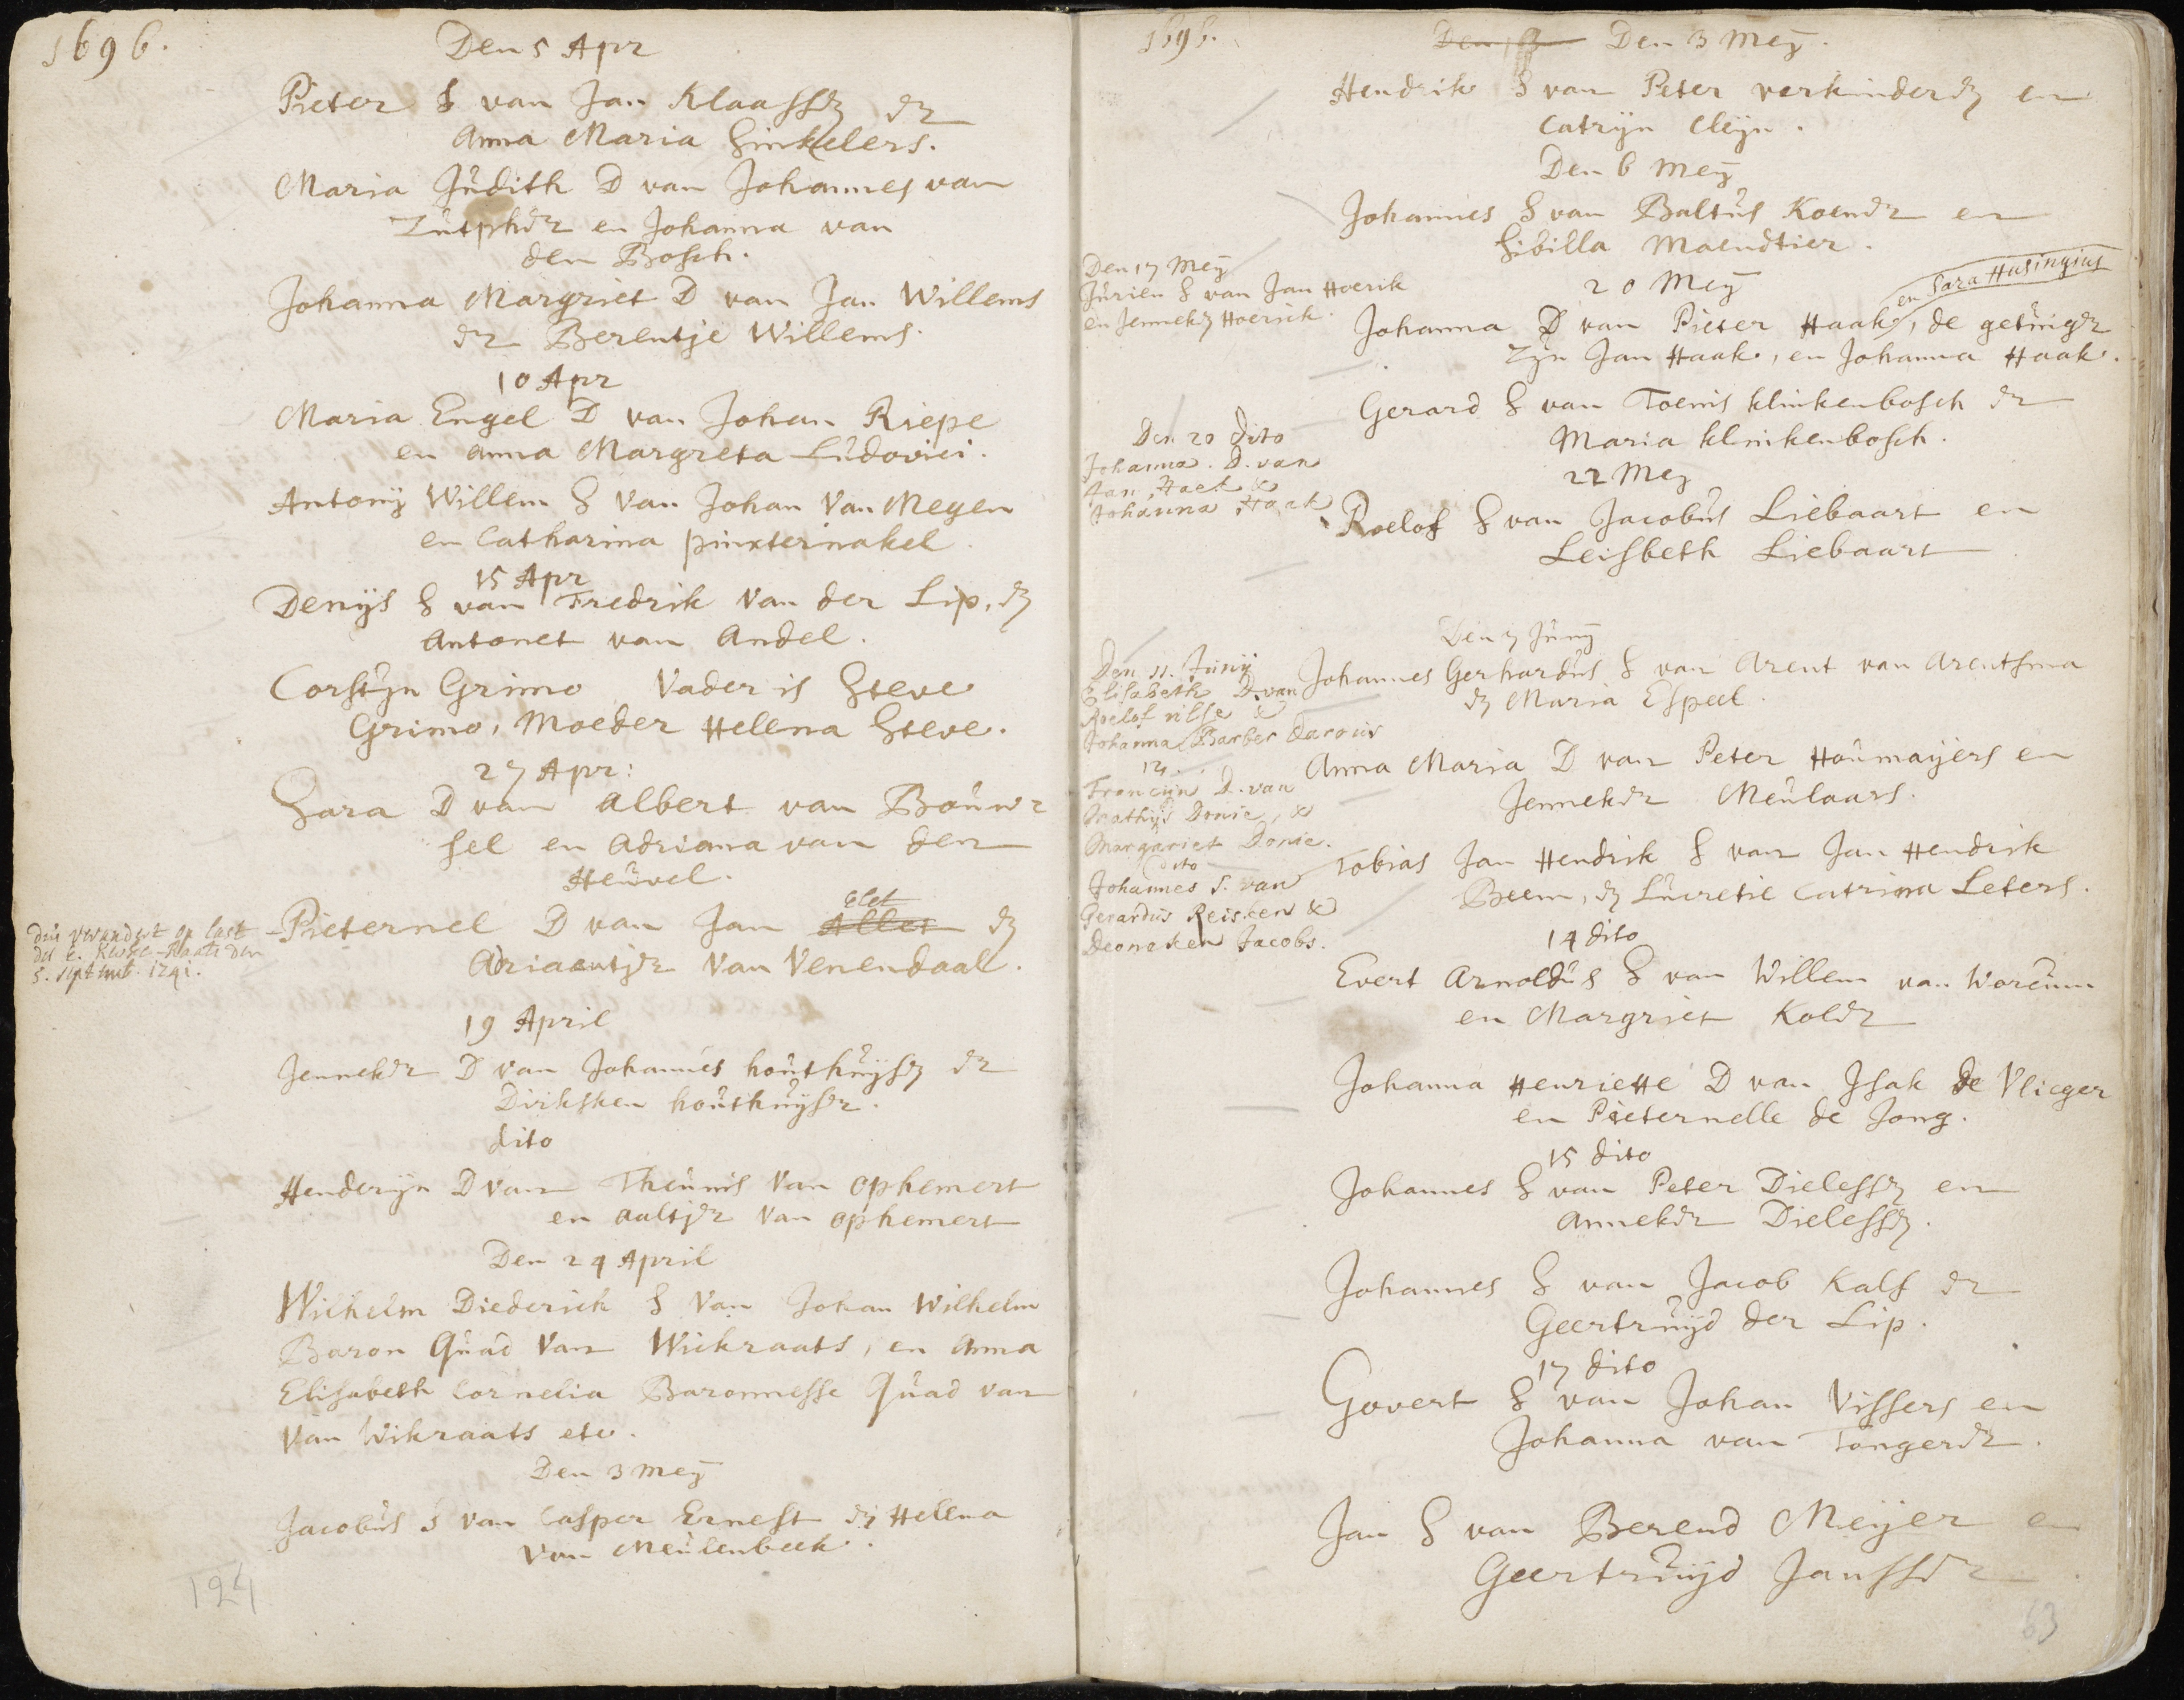 1696.
Den 5 Apr
Pieter S van Jan Klaassen en
Anna Maria Sinkelers.
Maria Judith D van Johannes van
Zutphen en Johanna van
den Bosch.
Johanna Margriet D van Jan Willems
en Berentje Willems.
10 Apr
Maria Engel D van Johan Riepe
en Anna Margreta Ludovici.
Antonij Willem S van Johan van Megen
en Catharina pinxternakel.
15 Apr
Denijs S van Fredrik van der Lip, en
Antonet van Andel.
Corstijn Grimo Vader is Steve
Grimo, Moeder Helena Steve.
27 Apr:
Sara D van Albert van Bouw
sel en Adriana van den
Heuvel.
elet
Pieternel D van Jan Allet en
Adriaentjen van Venendaal.
dus verandert op last
des E.
5. sept 1741.
19 April
Jenneken D van Johannes houthuijsen en
Dirksken houthuijsen.
dito
Henderijn D van Theunis van ophemert
en aaltjen van ophemert
Den 24 April
Wilhelm Diederick S van Johan Wilhelm
Baron Quad van Wickraats, en Anna
Elisabeth Cornelia Baronnesse Quad van
van Wikraats etc.
Den 3 Meij
Jacobus S van Casper Ernest en Helena
van Meulenbeek.
124
1696.
Den 3 Den 3 Meij.
Hendrik S van Peter verkinderen en
Catrijn Cleijn.
Den 6 Meij
Johannes S van Baltus Koenen en
Sibilla Maendtier.
Den 17 Meij
Jurien S van Jan Hoerik
en Jenneken Hoerick.
20 Meij
en Sara Husingius
Johanna D van Pieter Haak, de getuigen
zijn Jan Haak, en Johanna Haak.
Gerard S van Toenis klinkenbosch en
Maria klinkenbosch.
Den 20 dito
Johanna. D. van
Jan, Haek &
Johanna Haak
22 Meij
Roelof S van Jacobus Liebaart en
Leisbeth Liebaart
Den 7 Junij
Johannes Gerhardus S van Arent van Arentsma
en Maria Espeel.
Den 11. Junij
Elisabeth D. van
Roelof nilse &
Johanna Barber
Anna Maria D van Peter Houmaijers en
Jenneken Meulaars.
12.
Francijn D. van
Mathijs Donie, &
Margariet Donie.
Tobias Jan Hendrik S van Jan Hendrik
Beem, en Lucretie Catrina Leters.
dito
Johannes S. van
Gerardus Reisken &
Jacobs.
14 dito
Evert Arnoldus S van Willem van Worcum
en Margriet Kolen
Johanna Henriette D van Isak de Vlieger
en Pieternelle de Jong.
15 dito
Johannes S van Peter Dielessen en
Anneken Dielessen.
Johannes S van Jacob Kalf en
Geertruijd der Lip.
17 dito
Govert S van Johan Vissers en
Johanna van Tongeren.
Jan S van Berend Meijer en
Geertruijd Janssen
63